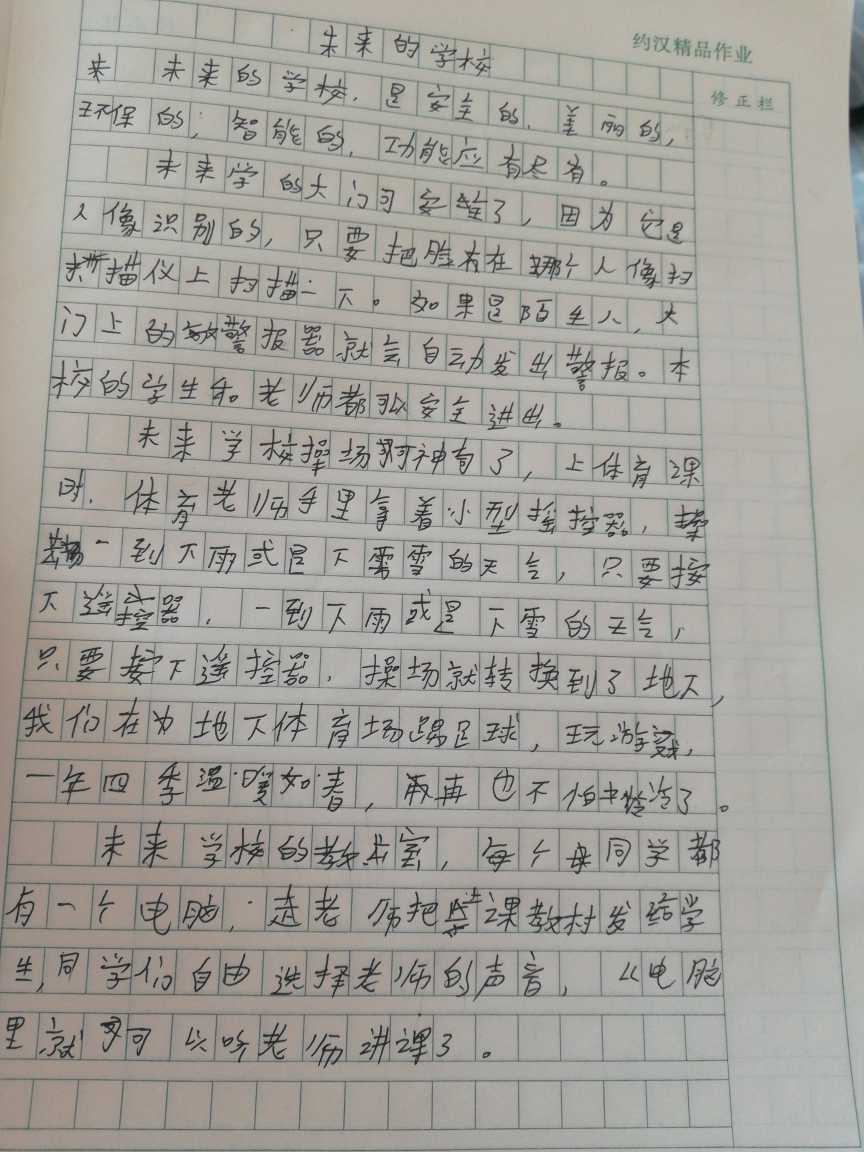 未来的学校
约汉精品作业
修正栏
来 未来的学校，是安全的，美丽的，
环保的；智能的，功能应有尽有。
未来学的大门可安雄了，因为它是
人像识别的，只要把脸右在那个人像扫
描仪上扫描一下。如果是陌生人，大
门上的警报器就会自动发出警报。本
校的学生和老师都可以安全进出。
未来学校操场可神奇了，上体育课
时，体育老师手里拿着小型摇控器，操
场一到下雨或是下雪的天气，只要按
下遥控器，一到下雨或是下雪的天气，
只要按下遥控器，操场就转换到了地下，
我们在为地下体育场踢足球，玩游戏，
一年四季温暖如春，再也不怕冷了。
未来学校的教室，每个母同学都
有一个电脑，走老师把课教材发给学
生，同学们自由选择老师的声音，从电脑
里就可以听老师讲课了。